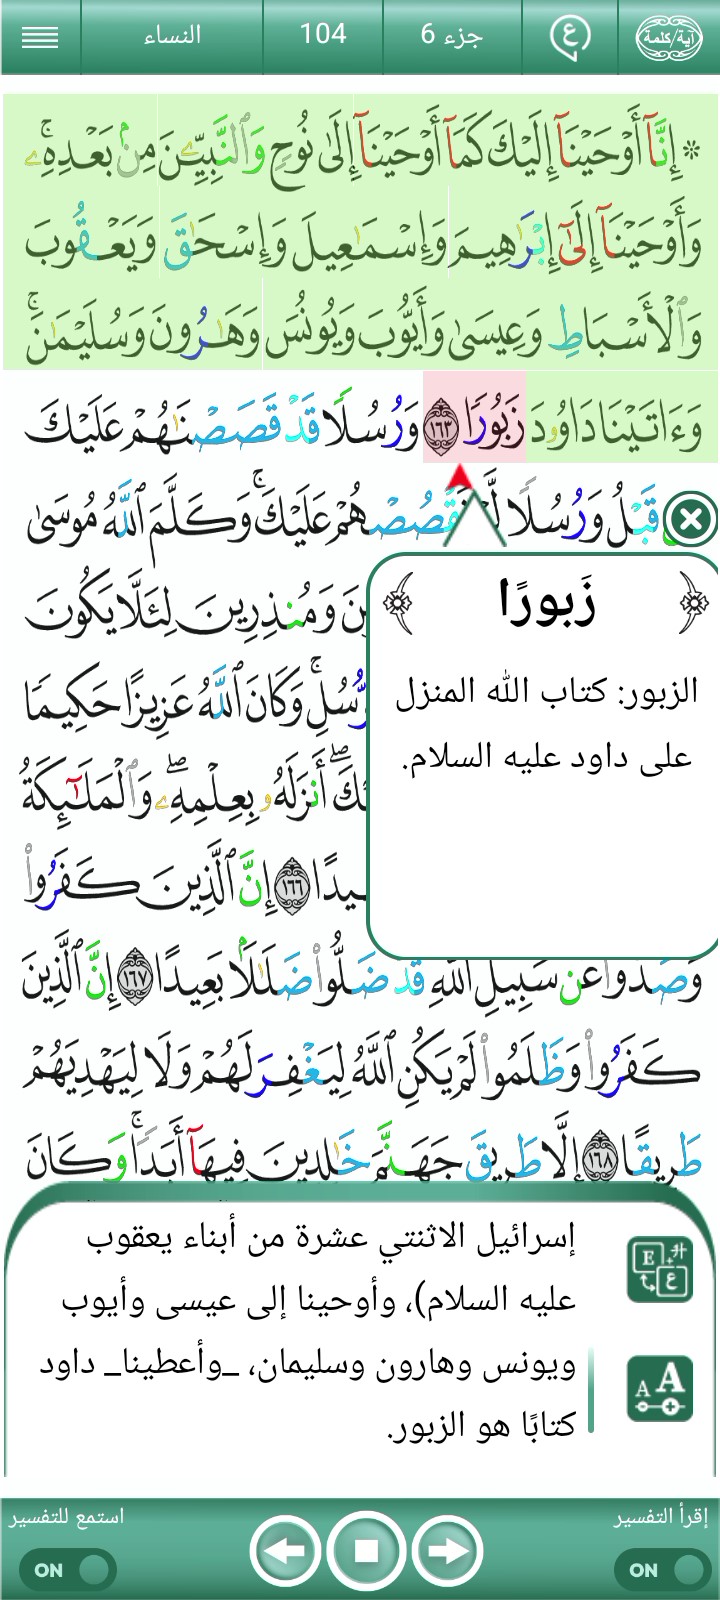 آية/كلمة
ع
جزء 6
104
النساء
۞ إِنَّآ أَوْحَيْنَآ إِلَيْكَ كَمَآ أَوْحَيْنَآ إِلَىٰ نُوحٍ وَٱلنَّبِيِّـۧنَ مِنۢ بَعْدِهِۦۚ
وَأَوْحَيْنَآ إِلَىٰٓ إِبْرَٰهِيمَ وَإِسْمَـٰعِيلَ وَإِسْحَـٰقَ وَيَعْقُوبَ
وَٱلْأَسْبَاطِ وَعِيسَىٰ وَأَيُّوبَ وَيُونُسَ وَهَـٰرُونَ وَسُلَيْمَـٰنَۚ
وَءَاتَيْنَا دَاوُۥدَ زَبُورًا ١٦٣ وَرُسُلًا قَدْ قَصَصْنَـٰهُمْ عَلَيْكَ
قَبْلُ وَرُسُلًا لَّمْ نَقْصُصْهُمْ عَلَيْكَۚ وَكَلَّمَ ٱللَّهُ مُوسَىٰ
وَمُنذِرِينَ لِئَلَّا يَكُونَ
وَكَانَ ٱللَّهُ عَزِيزًا حَكِيمًا
أَنزَلَهُۥ بِعِلْمِهِۦۖ وَٱلْمَلَـٰٓئِكَةُ
١٦٦ إِنَّ ٱلَّذِينَ كَفَرُوا۟
وَصَدُّوا۟ عَن سَبِيلِ ٱللَّهِ قَدْ ضَلُّوا۟ ضَلَـٰلًۢا بَعِيدًا ١٦٧ إِنَّ ٱلَّذِينَ
كَفَرُوا۟ وَظَلَمُوا۟ لَمْ يَكُنِ ٱللَّهُ لِيَغْفِرَ لَهُمْ وَلَا لِيَهْدِيَهُمْ
طَرِيقًا ١٦٨ إِلَّا طَرِيقَ جَهَنَّمَ خَـٰلِدِينَ فِيهَآ أَبَدًاۚ وَكَانَ
زَبورًا
الزبور: كتاب الله المنزل
على داود عليه السلام.
إسرائيل الاثنتي عشرة من أبناء يعقوب
عليه السلام)، وأوحينا إلى عيسى وأيوب
ويونس وهارون وسليمان، _وأعطينا_ داود
كتابًا هو الزبور.
E
ع
A A
إقرأ التفسير
استمع للتفسير
ON
ON